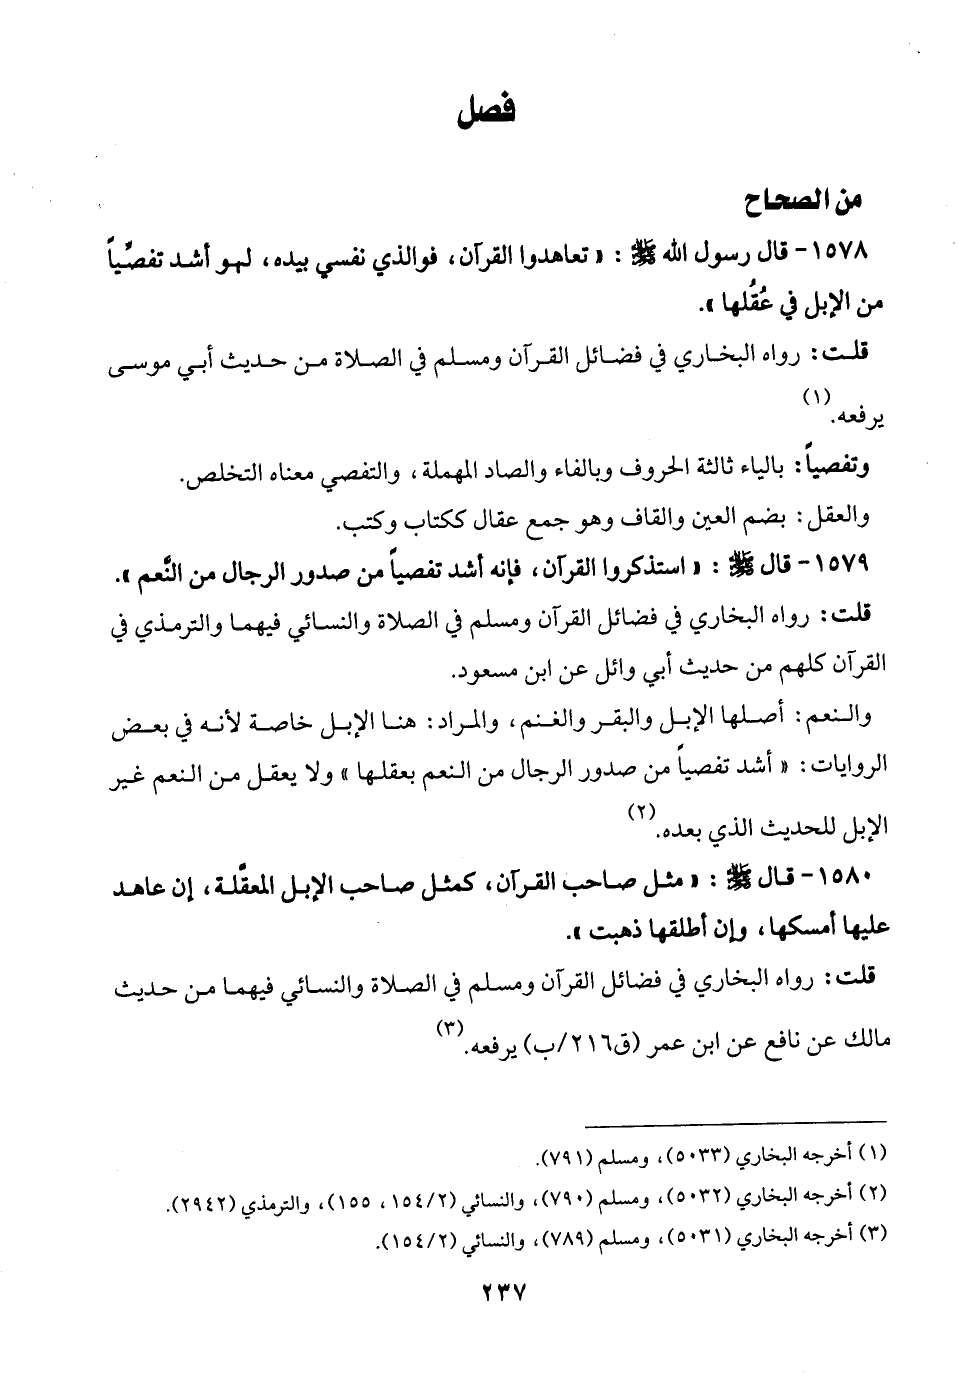 فصل
من الصحاح
١٥٧٨- قال رسول الله ﷺ : « تعاهدوا القرآن، فوالذي نفسي بيده، لهو أشد تفصِّياً
من الإبل في عُقُلها ».
قلت: رواه البخاري في فضائل القرآن ومسلم في الصلاة من حديث أبي موسى
يرفعه.(١)
وتفصياً: بالياء ثالثة الحروف وبالفاء والصاد المهملة، والتفصي معناه التخلص.
والعقل: بضم العين والقاف وهو جمع عقال ككتاب وكتب.
١٥٧٩- قال ﷺ : « استذكروا القرآن، فإنه أشد تفصياً من صدور الرجال من النَّعم ».
قلت: رواه البخاري في فضائل القرآن ومسلم في الصلاة والنسائي فيهما والترمذي في
القرآن كلهم من حديث أبي وائل عن ابن مسعود.
والنعم: أصلها الإبل والبقر والغنم، والمراد: هنا الإبل خاصة لأنه في بعض
الروايات: « أشد تفصياً من صدور الرجال من النعم بعقلها » ولا يعقل من النعم غير
الإبل للحديث الذي بعده.(٢)
١٥٨٠- قال ﷺ : « مثل صاحب القرآن، كمثل صاحب الإبل المعقَّلة، إن عاهد
عليها أمسكها، وإن أطلقها ذهبت ».
قلت: رواه البخاري في فضائل القرآن ومسلم في الصلاة والنسائي فيهما من حديث
مالك عن نافع عن ابن عمر (ق٢١٦/ب) يرفعه.(٣)
(١) أخرجه البخاري (٥٠٣٣)، ومسلم (٧٩١).
(٢) أخرجه البخاري (٥٠٣٢)، ومسلم (٧٩٠)، والنسائي (١٥٤/٢، ١٥٥)، والترمذي (٢٩٤٢).
(٣) أخرجه البخاري (٥٠٣١)، ومسلم (٧٨٩)، والنسائي (١٥٤/٢).
٢٣٧